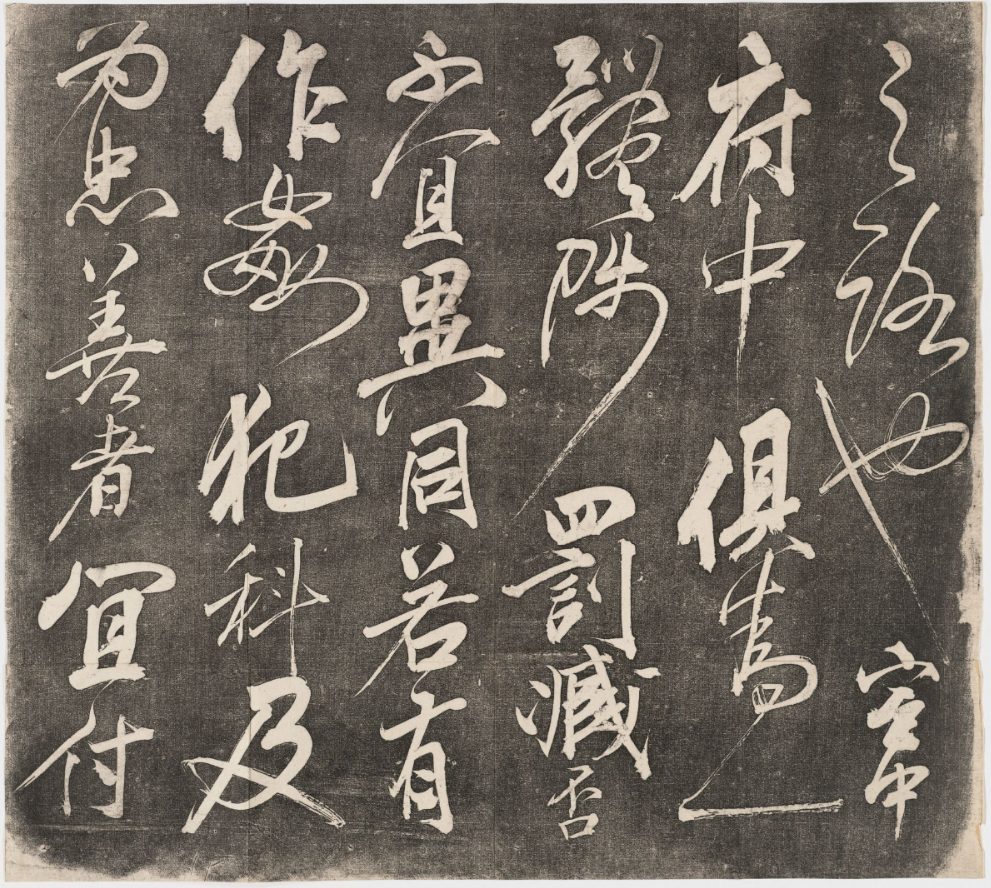 之路也宮中
府中俱爲一
體陟罰臧否
不宜異同若有
作姦犯科及
為忠善者宜付